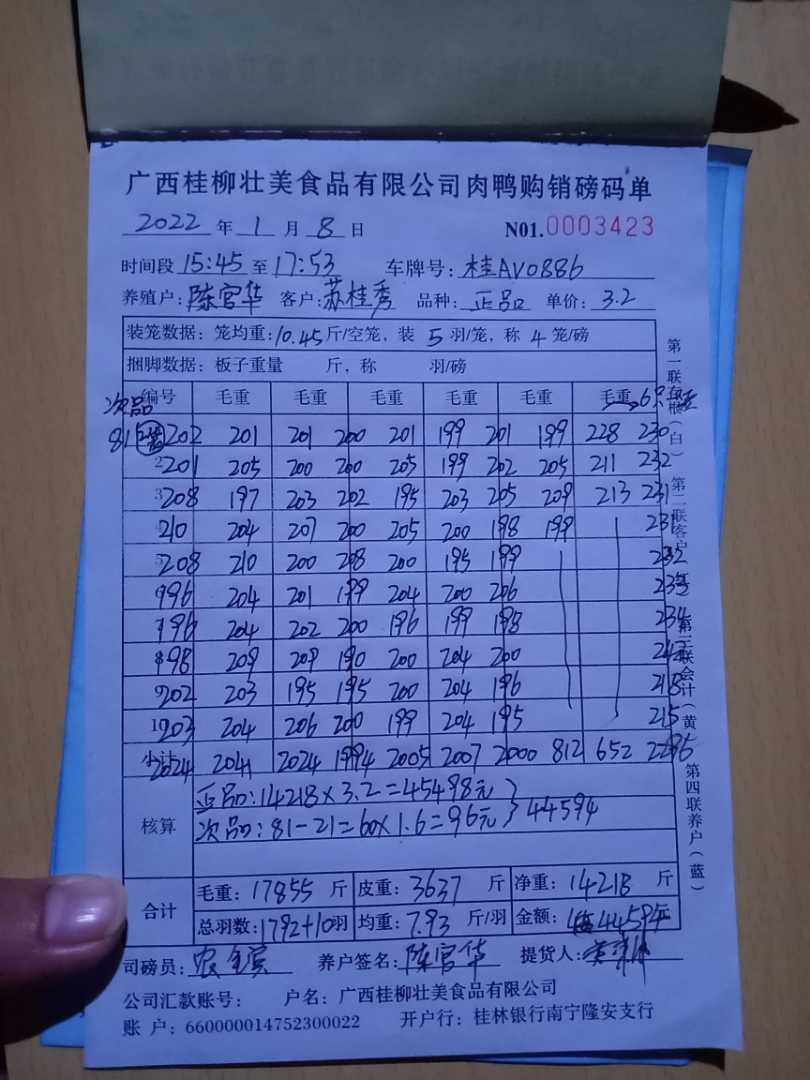 广西桂柳壮美食品有限公司肉鸭购销磅码单
2022 年 1 月 8 日 N01.0003423
时间段 15:45 至 17:53 车牌号: 桂AV0886
养殖户: 陈官华 客户: 苏桂秀 品种: 正品 单价: 3.2
装笼数据: 笼均重: 10.45 斤/空笼, 装 5 羽/笼, 称 4 笼/磅
捆脚数据: 板子重量 斤, 称 羽/磅
次品 编号 毛重 毛重 毛重 毛重 毛重 毛重 6只
81 202 201 201 200 201 199 201 199 228 230
2 201 205 200 200 205 199 202 205 211 232
3 208 197 203 202 195 203 205 209 213 231
210 204 207 200 205 200 198 199 231
5 208 210 200 208 200 195 199 232
196 204 201 199 204 200 206 235
196 204 202 200 196 199 198 234
198 209 209 190 200 204 200 242
202 203 195 195 200 204 196 218
10 203 204 206 200 199 204 195 215
小计 2024 2041 2024 1994 2005 2007 2000 812 652 2296
核算
正品: 14218×3.2=45498元
次品: 81-21=60×1.6=96元 } 44594
合计
毛重: 17855 斤 皮重: 3637 斤 净重: 14218 斤
总羽数: 1792+10羽 均重: 7.93 斤/羽 金额: 44594元
司磅员: 农全宾 养户签名: 陈官华 提货人:
公司汇款账号: 户名: 广西桂柳壮美食品有限公司
账 户: 660000014752300022 开户行: 桂林银行南宁隆安支行
第一联存根(白) 第二联客户 第三联会计(黄) 第四联养户(蓝)